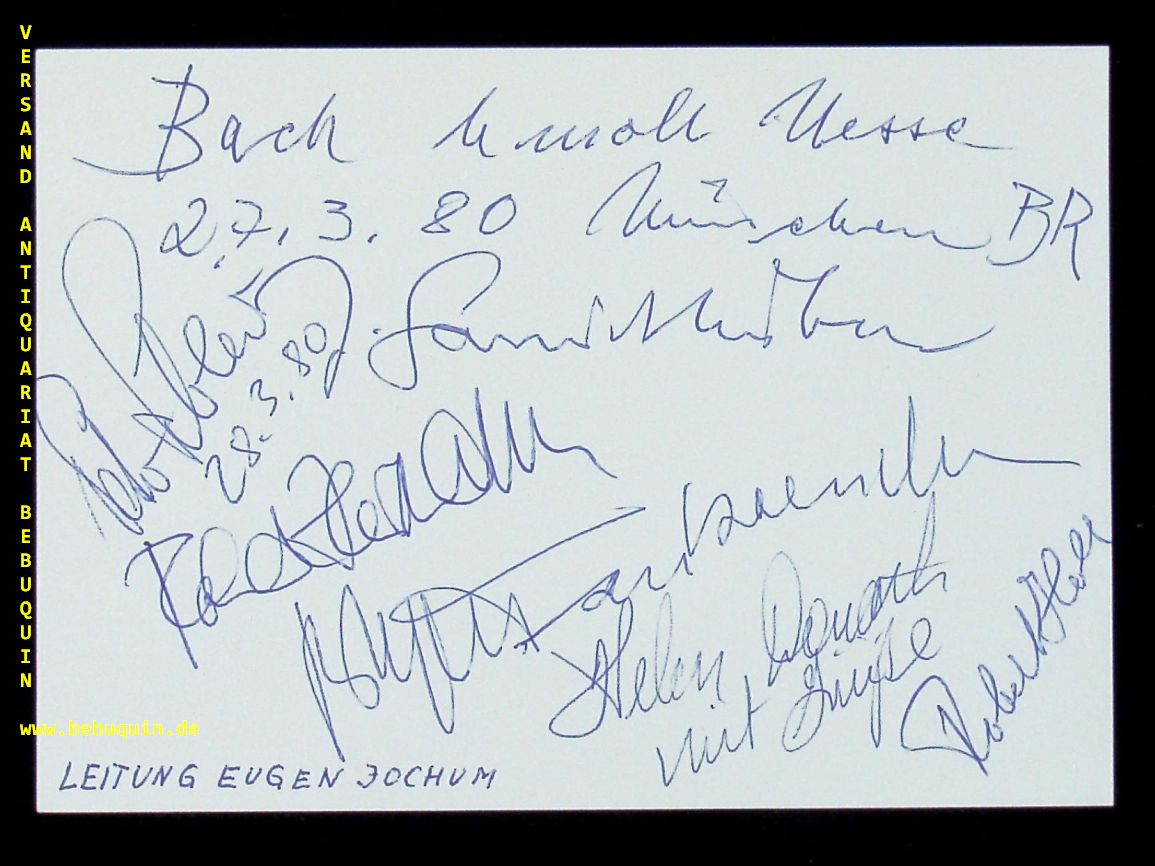 VERSAND ANTIQUARIAT BEBUQUIN
Bach h moll Messe
27. 3. 80 München BR
28.3.80
Brigitte Fassbaender
Helen Donath
mit Grüße
Robert Holl
www.bebuquin.de
LEITUNG EUGEN JOCHUM